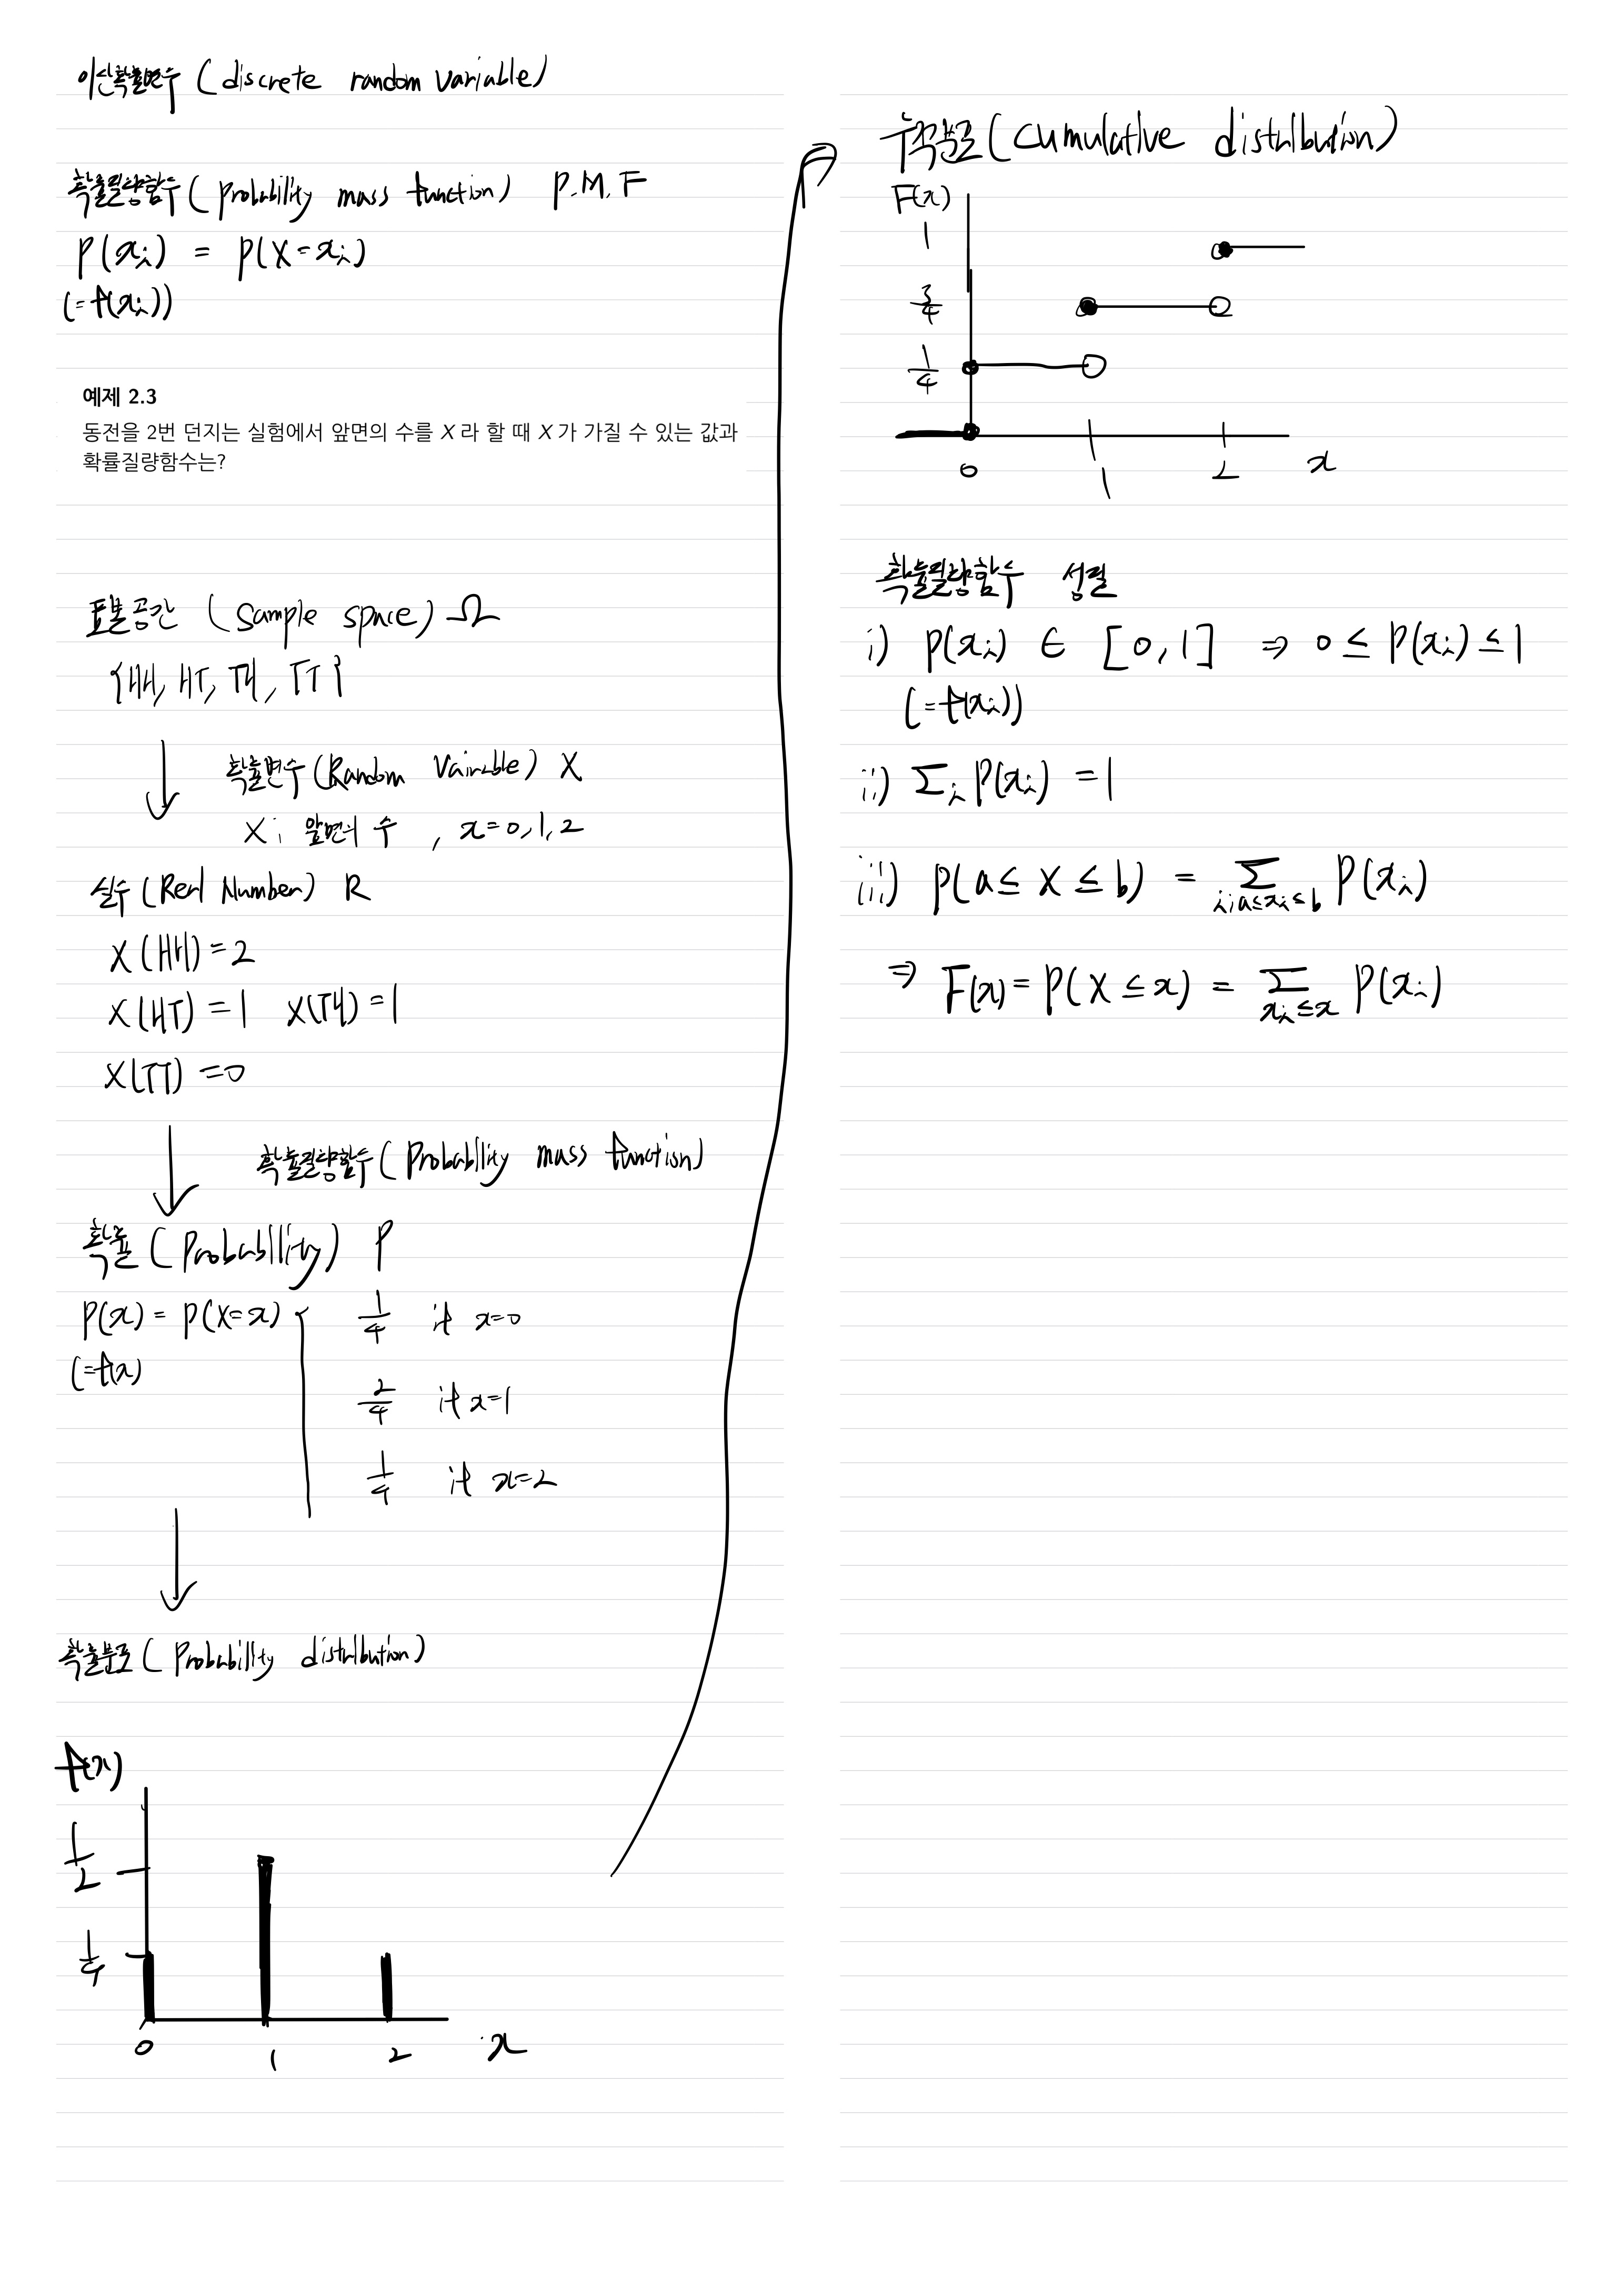 이산확률변수 (discrete random variable)
확률질량함수 (probability mass function) P.M.F
P(xᵢ) = P(X=xᵢ)
(=f(xᵢ))
예제 2.3
동전을 2번 던지는 실험에서 앞면의 수를 X 라 할 때 X 가 가질 수 있는 값과
확률질량함수는?
표본공간 (Sample space) Ω
{HH, HT, TH, TT}
확률변수 (Random Vairable) X
X; 앞면의 수 , x=0,1,2
실수 (Real Number) R
X(HH)=2
X(HT)=1 X(TH)=1
X(TT)=0
확률질량함수 (Probability mass function)
확률 (Probability) P
P(x) = P(X=x) { 1/4 if x=0
(=f(x)
2/4 if x=1
1/4 if x=2
확률분포 (Probability distribution)
f(x)
1/2
1/4
0 1 2 x
누적분포 (Cumulative distribution)
F(x)
1
3/4
1/4
0 1 2 x
확률질량함수 성질
i) P(xᵢ) ∈ [0,1] ⇒ 0 ≤ P(xᵢ) ≤ 1
(=f(xᵢ))
ii) Σᵢ P(xᵢ) = 1
iii) P(a ≤ X ≤ b) = Σ i;a≤xᵢ≤b P(xᵢ)
⇒ F(x) = P(X ≤ x) = Σ xᵢ≤x P(xᵢ)